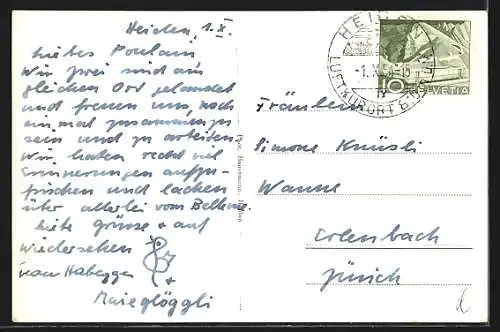 Heiden, 1.X.
Liebes Poulain
Wir zwei sind am
gleichen Ort gelandet
und freuen uns, noch
einmal zusammen zu
sein und zu arbeiten
Wir haben recht viel
Erinnerungen aufzu-
frischen und lachen
über allerlei vom
Liebe Grüsse + auf
Wiedersehen
Habegger
+
Maieglöggli
Phot. Heiden
HEIDEN
-1.X.
LUFTKURORT
10
HELVETIA
Fräulein
Simone Knüsli
Wanne
Erlenbach
Zürich